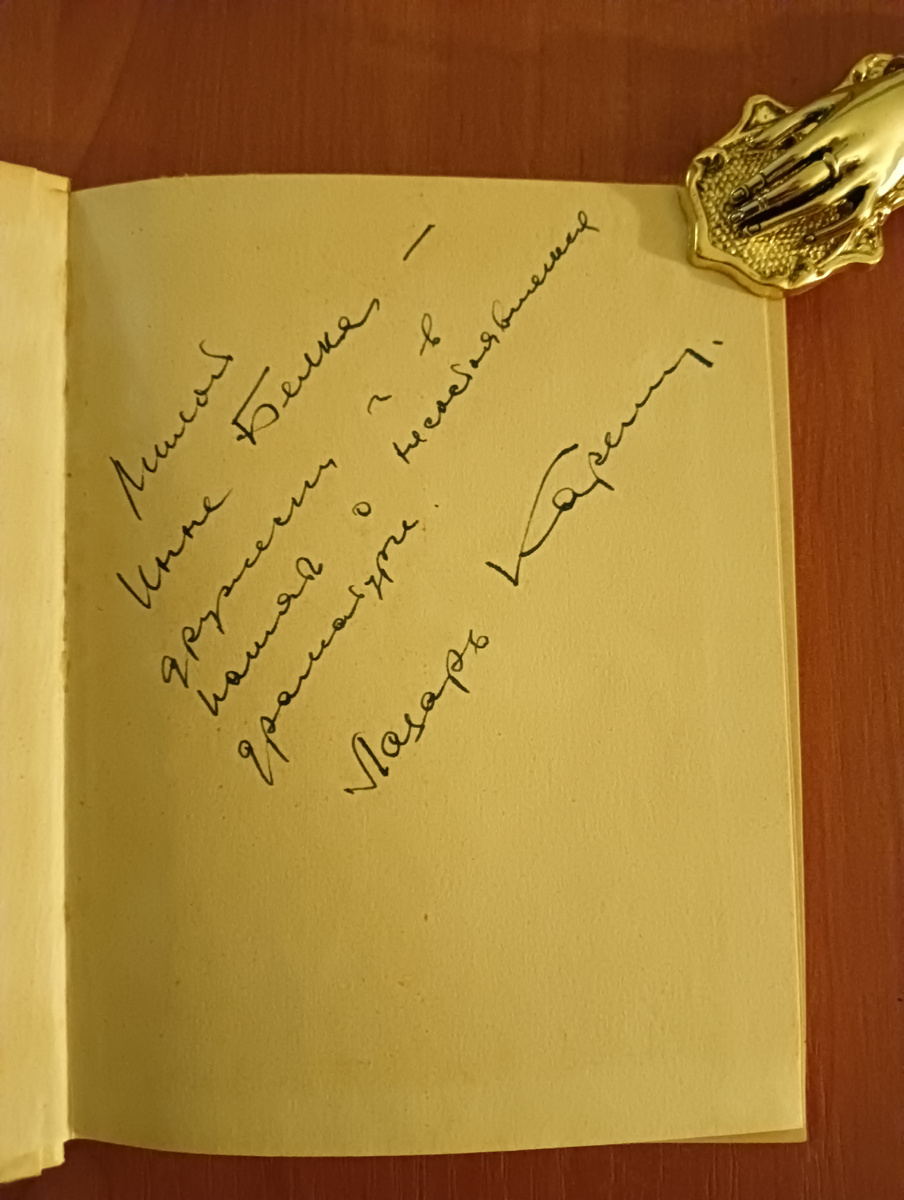 Милой
Инне Белке, —
дружески и в
память о несостоявшемся
драматурге.
Лазарь Карелин.